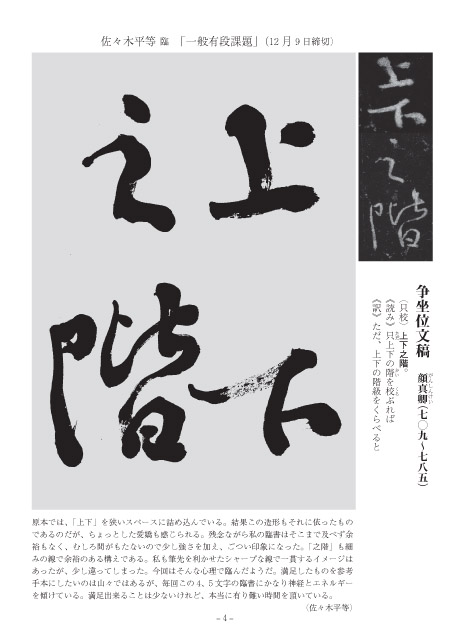 佐々木平等 臨 「一般有段課題」(12月9日締切)
上下之階
上下
之階
争坐位文稿 顔真卿(七〇九〜七八五)
がんしんけい
(只校)上下之階。
《読み》只上下の階を校ぶれば
《訳》ただ、上下の階級をくらべると
原本では、「上下」を狭いスペースに詰め込んでいる。結果この造形もそれに依ったもの
であるのだが、ちょっとした愛嬌も感じられる。残念ながら私の臨書はそこまで及べず余
裕もなく、むしろ間がもたないので少し強さを加え、ごつい印象になった。「之階」も細
みの線で余裕のある構えである。私も筆先を利かせたシャープな線で一貫するイメージは
あったが、少し違ってしまった。今回はそんな心理で臨んだようだ。満足したものを参考
手本にしたいのは山々ではあるが、毎回この4、5文字の臨書にかなり神経とエネルギー
を傾けている。満足出来ることは少ないけれど、本当に有り難い時間を頂いている。
(佐々木平等)
- 4 -